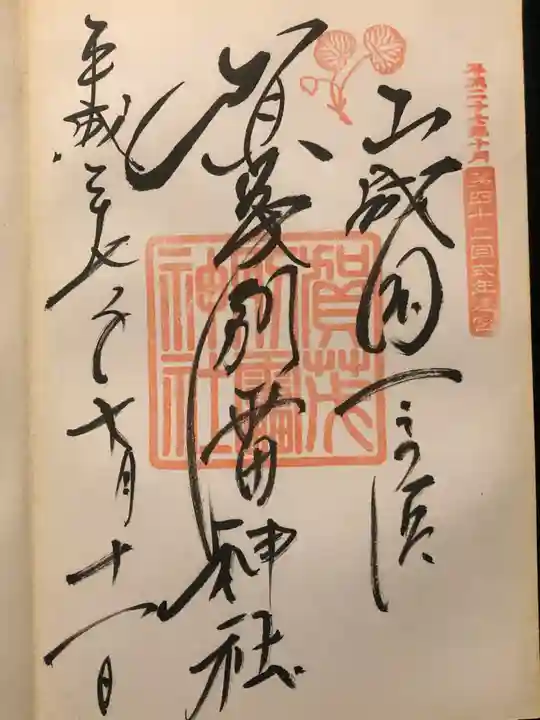 平成二十七年十月
第四十二回式年遷宮
山城國一之宮
賀茂別雷神社
賀茂
別雷
神社
平成二十七年十月十一日